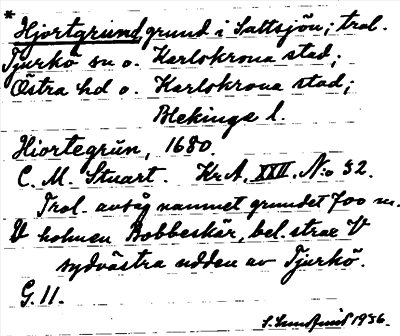 * Hjortgrund grund i Saltsjön; trol.
Tjurkö sn o. Karlskrona stad;
Östra hd o. Karlskrona stad;
Blekinge l.
Hiortegrŭn, 1680.
C. M. Stuart. Kr.A. XXII. N:o 32.
Trol. avsåg namnet grundet 700 m.
V holmen Bobbeskär, bel. strax V
sydvästra udden av Tjurkö.
G. 11.
S. Lundquist 1936.